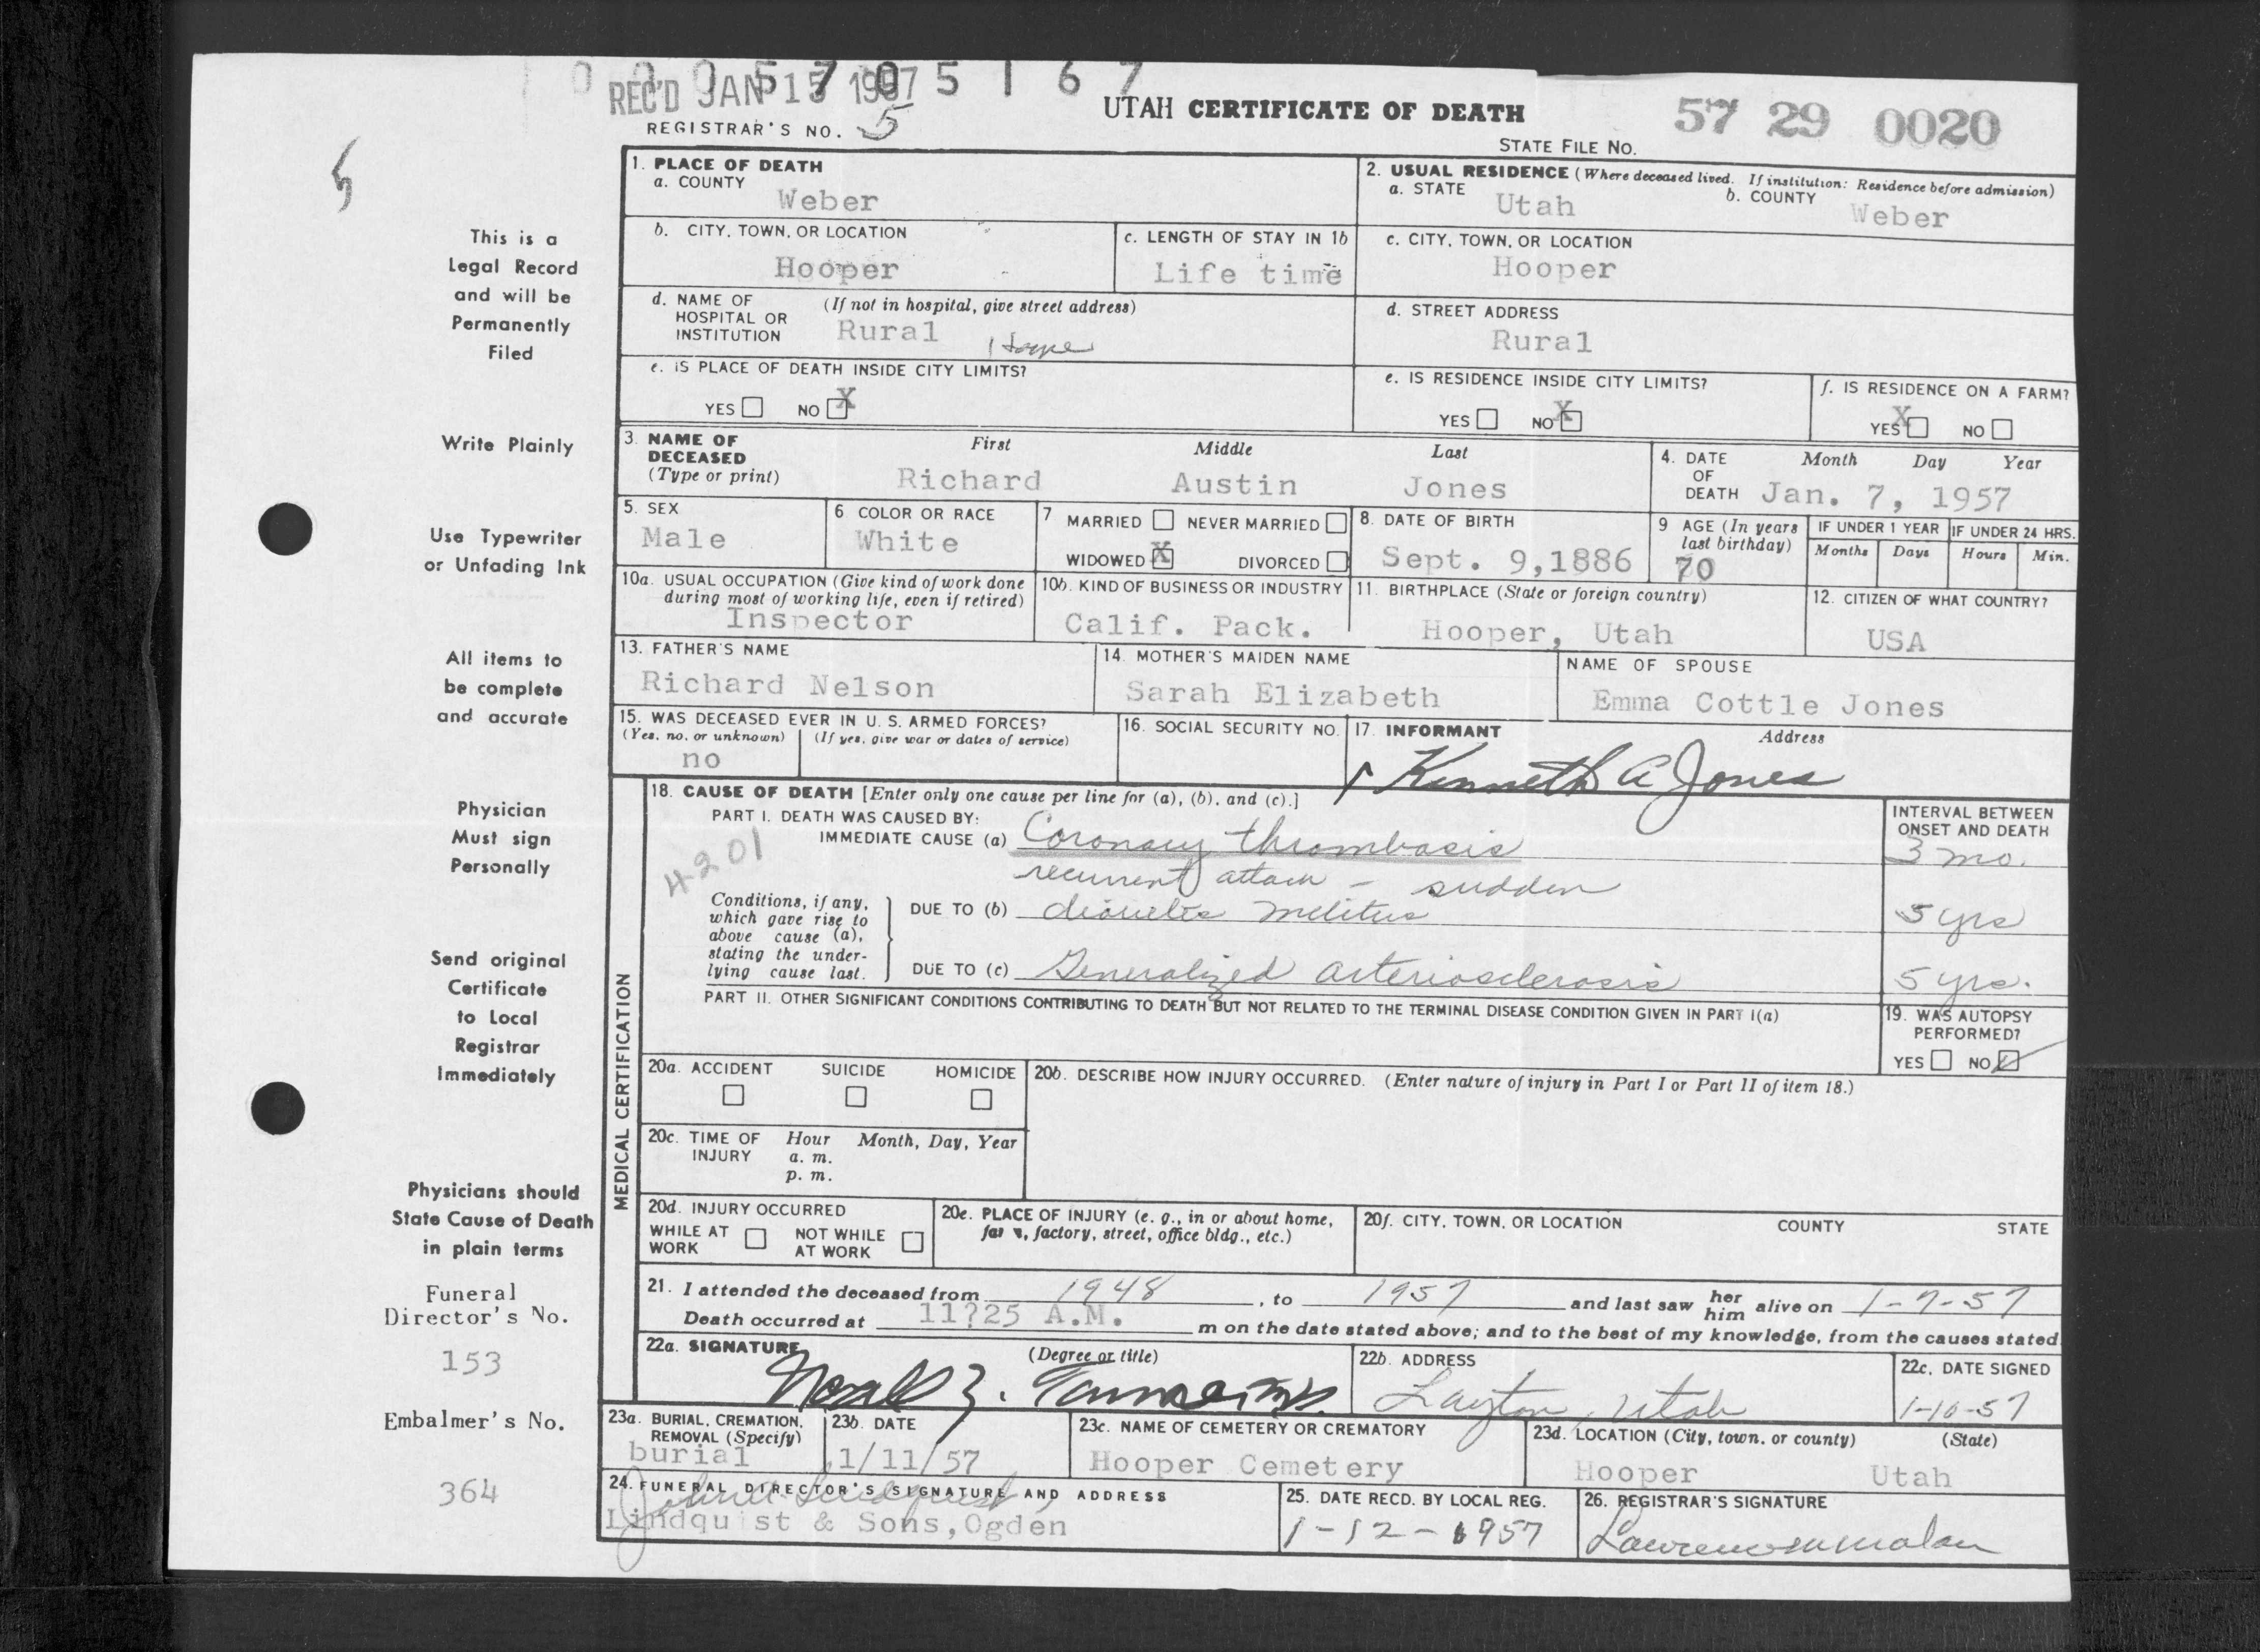 0 0 0 5 7 0 5 1 6 7
REC'D JAN 15 1957
REGISTRAR'S NO. 5
UTAH CERTIFICATE OF DEATH
57 29 0020
STATE FILE NO.
This is a
Legal Record
and will be
Permanently
Filed
Write Plainly
Use Typewriter
or Unfading Ink
All items to
be complete
and accurate
Physician
Must sign
Personally
Send original
Certificate
to Local
Registrar
Immediately
Physicians should
State Cause of Death
in plain terms
Funeral
Director's No.
153
Embalmer's No.
364
1. PLACE OF DEATH
a. COUNTY
Weber
2. USUAL RESIDENCE (Where deceased lived. If institution: Residence before admission)
a. STATE Utah b. COUNTY Weber
b. CITY, TOWN, OR LOCATION
Hooper
c. LENGTH OF STAY IN 1b
Life time
c. CITY, TOWN, OR LOCATION
Hooper
d. NAME OF HOSPITAL OR INSTITUTION (If not in hospital, give street address)
Rural
d. STREET ADDRESS
Rural
e. IS PLACE OF DEATH INSIDE CITY LIMITS?
YES NO X
e. IS RESIDENCE INSIDE CITY LIMITS?
YES NO X
f. IS RESIDENCE ON A FARM?
YES X NO
3. NAME OF DECEASED (Type or print)
First Middle Last
Richard Austin Jones
4. DATE OF DEATH Month Day Year
Jan. 7, 1957
5. SEX
Male
6 COLOR OR RACE
White
7 MARRIED NEVER MARRIED
WIDOWED X DIVORCED
8. DATE OF BIRTH
Sept. 9,1886
9 AGE (In years last birthday)
70
IF UNDER 1 YEAR IF UNDER 24 HRS.
Months Days Hours Min.
10a. USUAL OCCUPATION (Give kind of work done during most of working life, even if retired)
Inspector
10b. KIND OF BUSINESS OR INDUSTRY
Calif. Pack.
11. BIRTHPLACE (State or foreign country)
Hooper, Utah
12. CITIZEN OF WHAT COUNTRY?
USA
13. FATHER'S NAME
Richard Nelson
14. MOTHER'S MAIDEN NAME
Sarah Elizabeth
NAME OF SPOUSE
Emma Cottle Jones
15. WAS DECEASED EVER IN U. S. ARMED FORCES?
(Yes, no, or unknown) (If yes, give war or dates of service)
no
16. SOCIAL SECURITY NO.
17. INFORMANT Address
Kenneth A Jones
MEDICAL CERTIFICATION
18. CAUSE OF DEATH [Enter only one cause per line for (a), (b), and (c).]
PART I. DEATH WAS CAUSED BY:
INTERVAL BETWEEN
ONSET AND DEATH
4201
IMMEDIATE CAUSE (a) Coronary thrombosis 3 mo.
recurrent attack - sudden
Conditions, if any,
which gave rise to
above cause (a),
stating the under-
lying cause last.
DUE TO (b) diabetes melitus 5 yrs
DUE TO (c) Generalized arteriosclerosis 5 yrs.
PART II. OTHER SIGNIFICANT CONDITIONS CONTRIBUTING TO DEATH BUT NOT RELATED TO THE TERMINAL DISEASE CONDITION GIVEN IN PART I(a)
19. WAS AUTOPSY
PERFORMED?
YES NO
20a. ACCIDENT SUICIDE HOMICIDE
20b. DESCRIBE HOW INJURY OCCURRED. (Enter nature of injury in Part I or Part II of item 18.)
20c. TIME OF INJURY Hour Month, Day, Year
a. m.
p. m.
20d. INJURY OCCURRED
WHILE AT WORK NOT WHILE AT WORK
20e. PLACE OF INJURY (e. g., in or about home,
farm, factory, street, office bldg., etc.)
20f. CITY, TOWN, OR LOCATION COUNTY STATE
21. I attended the deceased from 1948, to 1957 and last saw her him alive on 1-7-57
Death occurred at 11?25 A.M. m on the date stated above; and to the best of my knowledge, from the causes stated.
22a. SIGNATURE (Degree or title)
22b. ADDRESS
Layton, Utah
22c. DATE SIGNED
1-10-57
23a. BURIAL, CREMATION,
REMOVAL (Specify)
burial
23b. DATE
1/11/57
23c. NAME OF CEMETERY OR CREMATORY
Hooper Cemetery
23d. LOCATION (City, town, or county) (State)
Hooper Utah
24. FUNERAL DIRECTOR'S SIGNATURE AND ADDRESS
Lindquist & Sons,Ogden
25. DATE RECD. BY LOCAL REG.
1-12-1957
26. REGISTRAR'S SIGNATURE